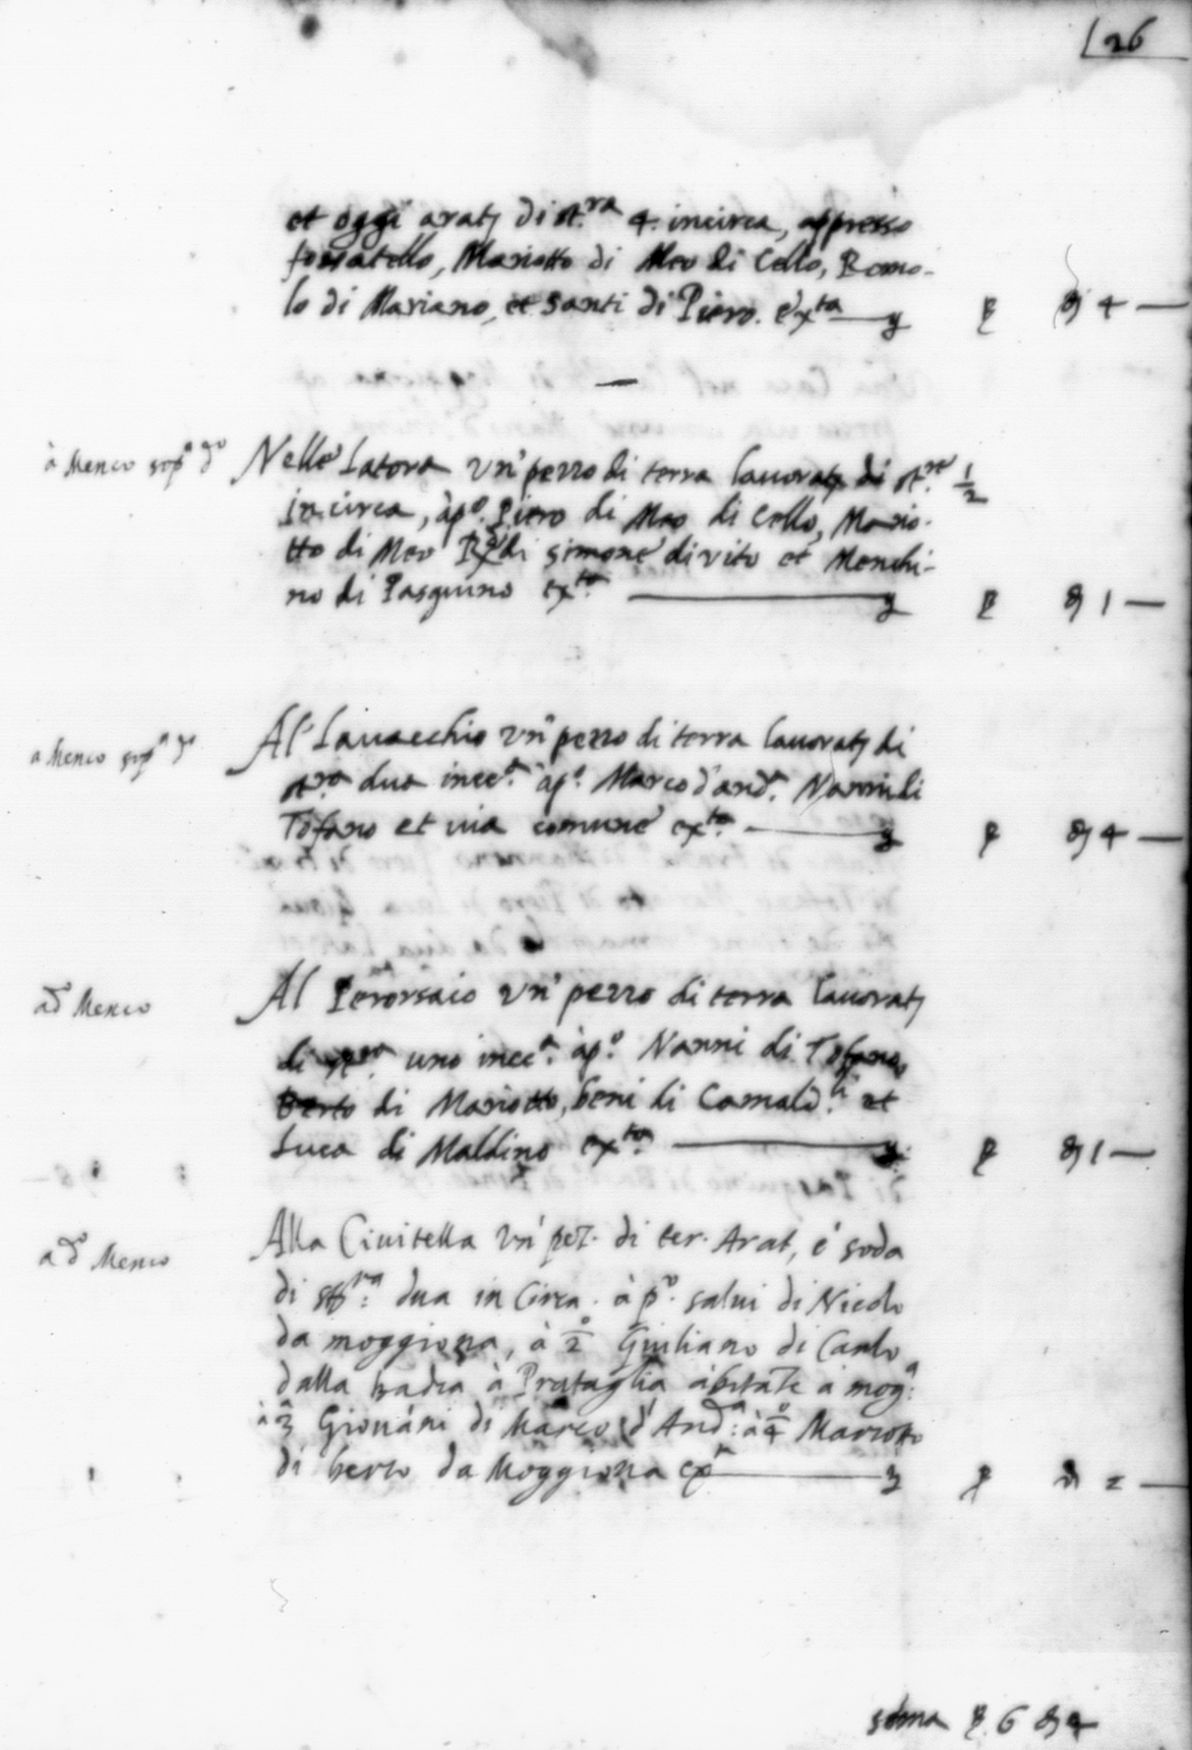 26
et oggi arat, di st.ra 4. incirca, appresso
fossatello, Mariotto di Meo di Cello, Romo-
lo di Mariano, et Santi di Piero. exta — 4 —
à Menco sop.o d.o Nelle Latora un' pezzo di terra lauorat, di st.re 1/2
in circa, àp.o Piero di Meo di Cello, Mario-
tto di Meo di simone di vito et Menchi-
no di Pasquino ex.ta — 1 —
a Menco sop.o d.o Al' Lauacchio un' pezzo di terra lauorat, di
st.ra dua incc.a àp.o Marco d'and.a Nanni di
Tofano et via comune ex.ta — 4 —
a d.o Menco Al un' pezzo di terra lauorat,
di st.ra uno incc.a àp.o Nanni di Tofano,
Berto di Mariotto, beni di Camald.li et
Luca di Maldino ex.ta — 1 —
a d.o Menco Alla Ciuitella un' pez. di ter. Arat, e' soda
di st.ra: dua in Circa. à p.o salui di Nicolo
da moggiona, à 2.o Giuliano di Carlo
dalla badia à Prataglia abitāte a mog.a:
à 3.a Giouāni di Marco d' And.a: à 4.o Mariotto
di berto da Moggiona ex.ta — 2 —
soma 6 4 —